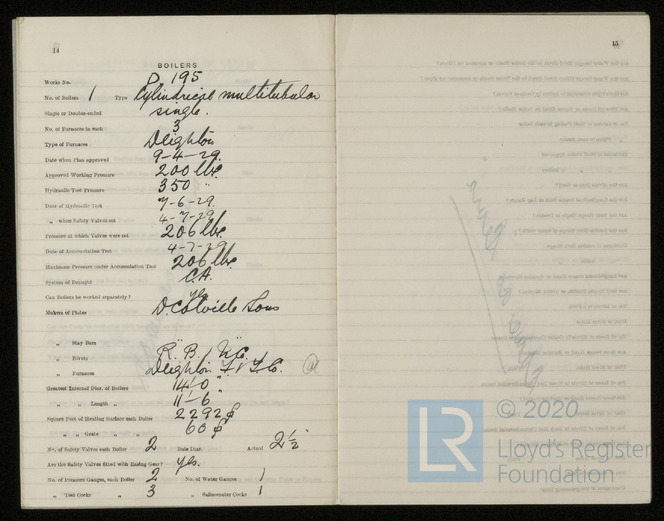 14
15
BOILERS
Works No. D. 195
No. of Boilers 1 Type Cylindrical multitubular
Single or Double-ended single.
No. of Furnaces in each 3
Type of Furnaces Deighton
Date when Plan approved 9-4-29.
Approved Working Pressure 200 lbs.
Hydraulic Test Pressure 350 "
Date of Hydraulic Test 7-6-29.
" when Safety Valves set 4-7-29
Pressure at which Valves were set 206 lbs.
Date of Accumulation Test 4-7-29
Maximum Pressure under Accumulation Test 206 lbs.
System of Draught C.A.
Can Boilers be worked separately? yes
Makers of Plates D Colville Sons
" Stay Bars "
" Rivets R. B. N. Co.
" Furnaces Deighton F & T. Co.
Greatest Internal Diam. of Boilers 14'-0"
" " Length " 11'-6"
Square Feet of Heating Surface each Boiler 2292
" " Grate " " 60
No. of Safety Valves each Boiler 2 Rule Diam. Actual 2½"
Are the Safety Valves fitted with Easing Gear? Yes.
No. of Pressure Gauges, each Boiler 2 No. of Water Gauges 1
" Test Cocks " 3 " Salinometer Cocks 1
© 2020
LR
Lloyd's Register
Foundation